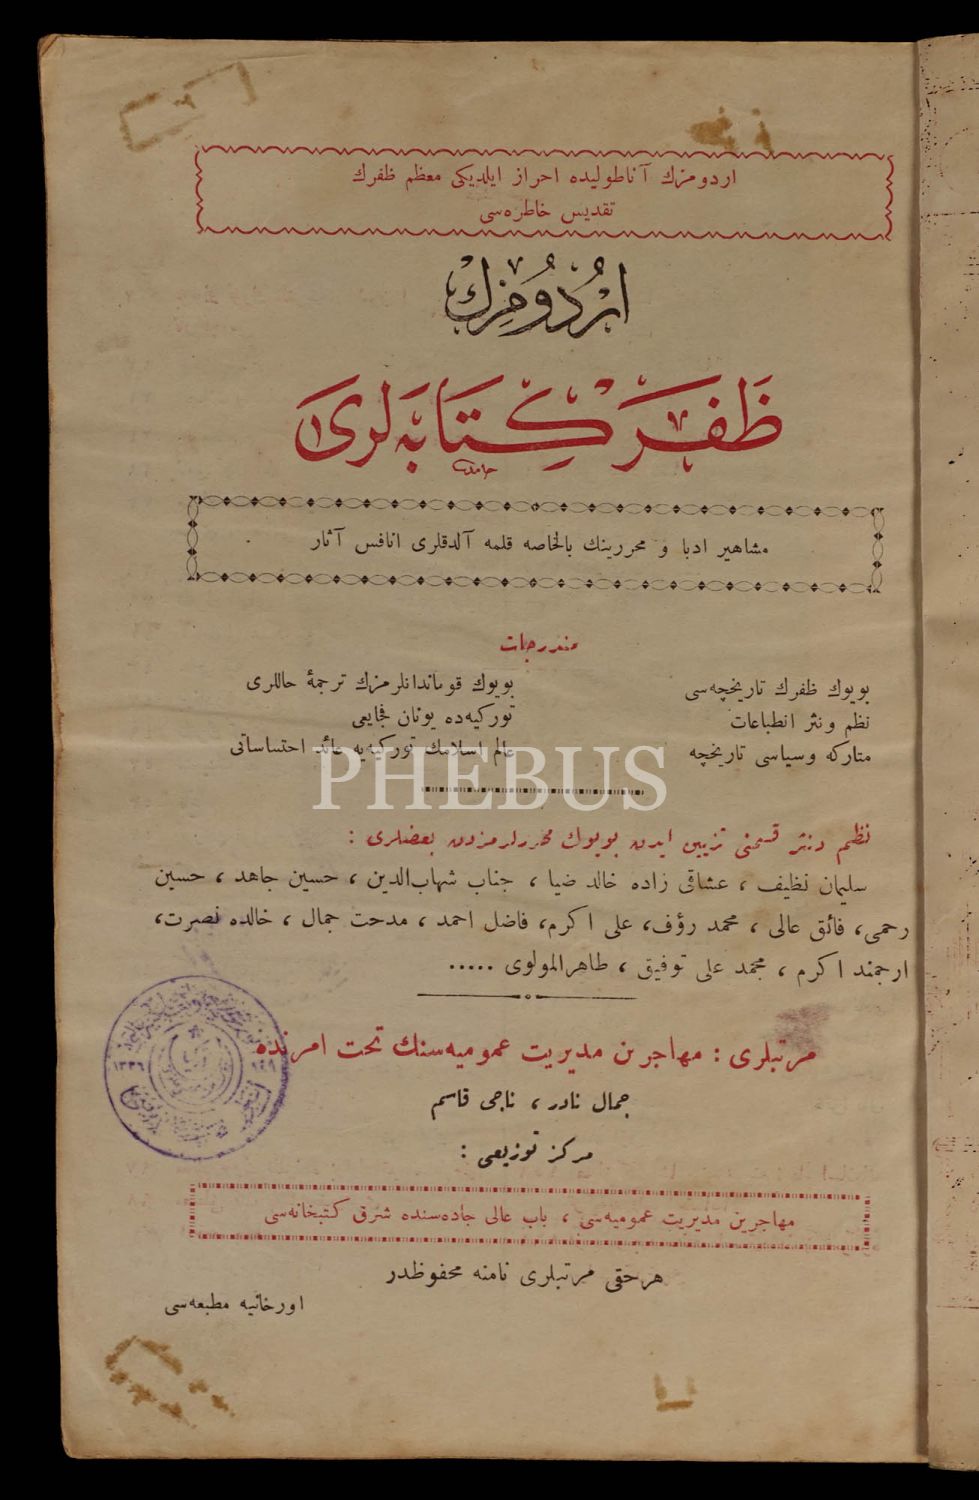 اردومزك آناطولیده احراز ایلدیکی معظم ظفرك
تقدیس خاطره‌سی
اردومزك
ظفر كتابه‌لری
حامد
مشاهیر ادبا و محررینك بالخاصه قلمه آلدقلری انافس آثار
مندرجات
بویوك ظفرك تاریخچه‌سی
نظم ونثر انطباعات
متاركه وسیاسی تاریخچه
بویوك قوماندانلرمزك ترجمهٔ حاللری
توركیه‌ده یونان فجایعی
عالم اسلامك توركیه‌یه عائد احتساساتی
PHEBUS
نظم ونثر قسمنی تزیین ایدن بویوك محررلرمزدن بعضلری :
سلیمان نظیف ، عشاقی زاده خالد ضیا ، جناب شهاب‌الدین ، حسین جاهد ، حسین
رحمی، فائق عالی ، محمد رؤف، علی اكرم، فاضل احمد ، مدحت جمال ، خالده نصرت،
ارجمند اكرم ، محمد علی توفیق ، طاهرالمولوی .....
مرتبلری : مهاجرین مدیریت عمومیه‌سنك تحت امرنده
جمال نادر ، ناجی قاسم
مركز توزیعی :
مهاجرین مدیریت عمومیه‌سی ، باب عالی جاده‌سنده شرق كتبخانه‌سی
هر حقی مرتبلری نامنه محفوظدر
اورخانیه مطبعه‌سی